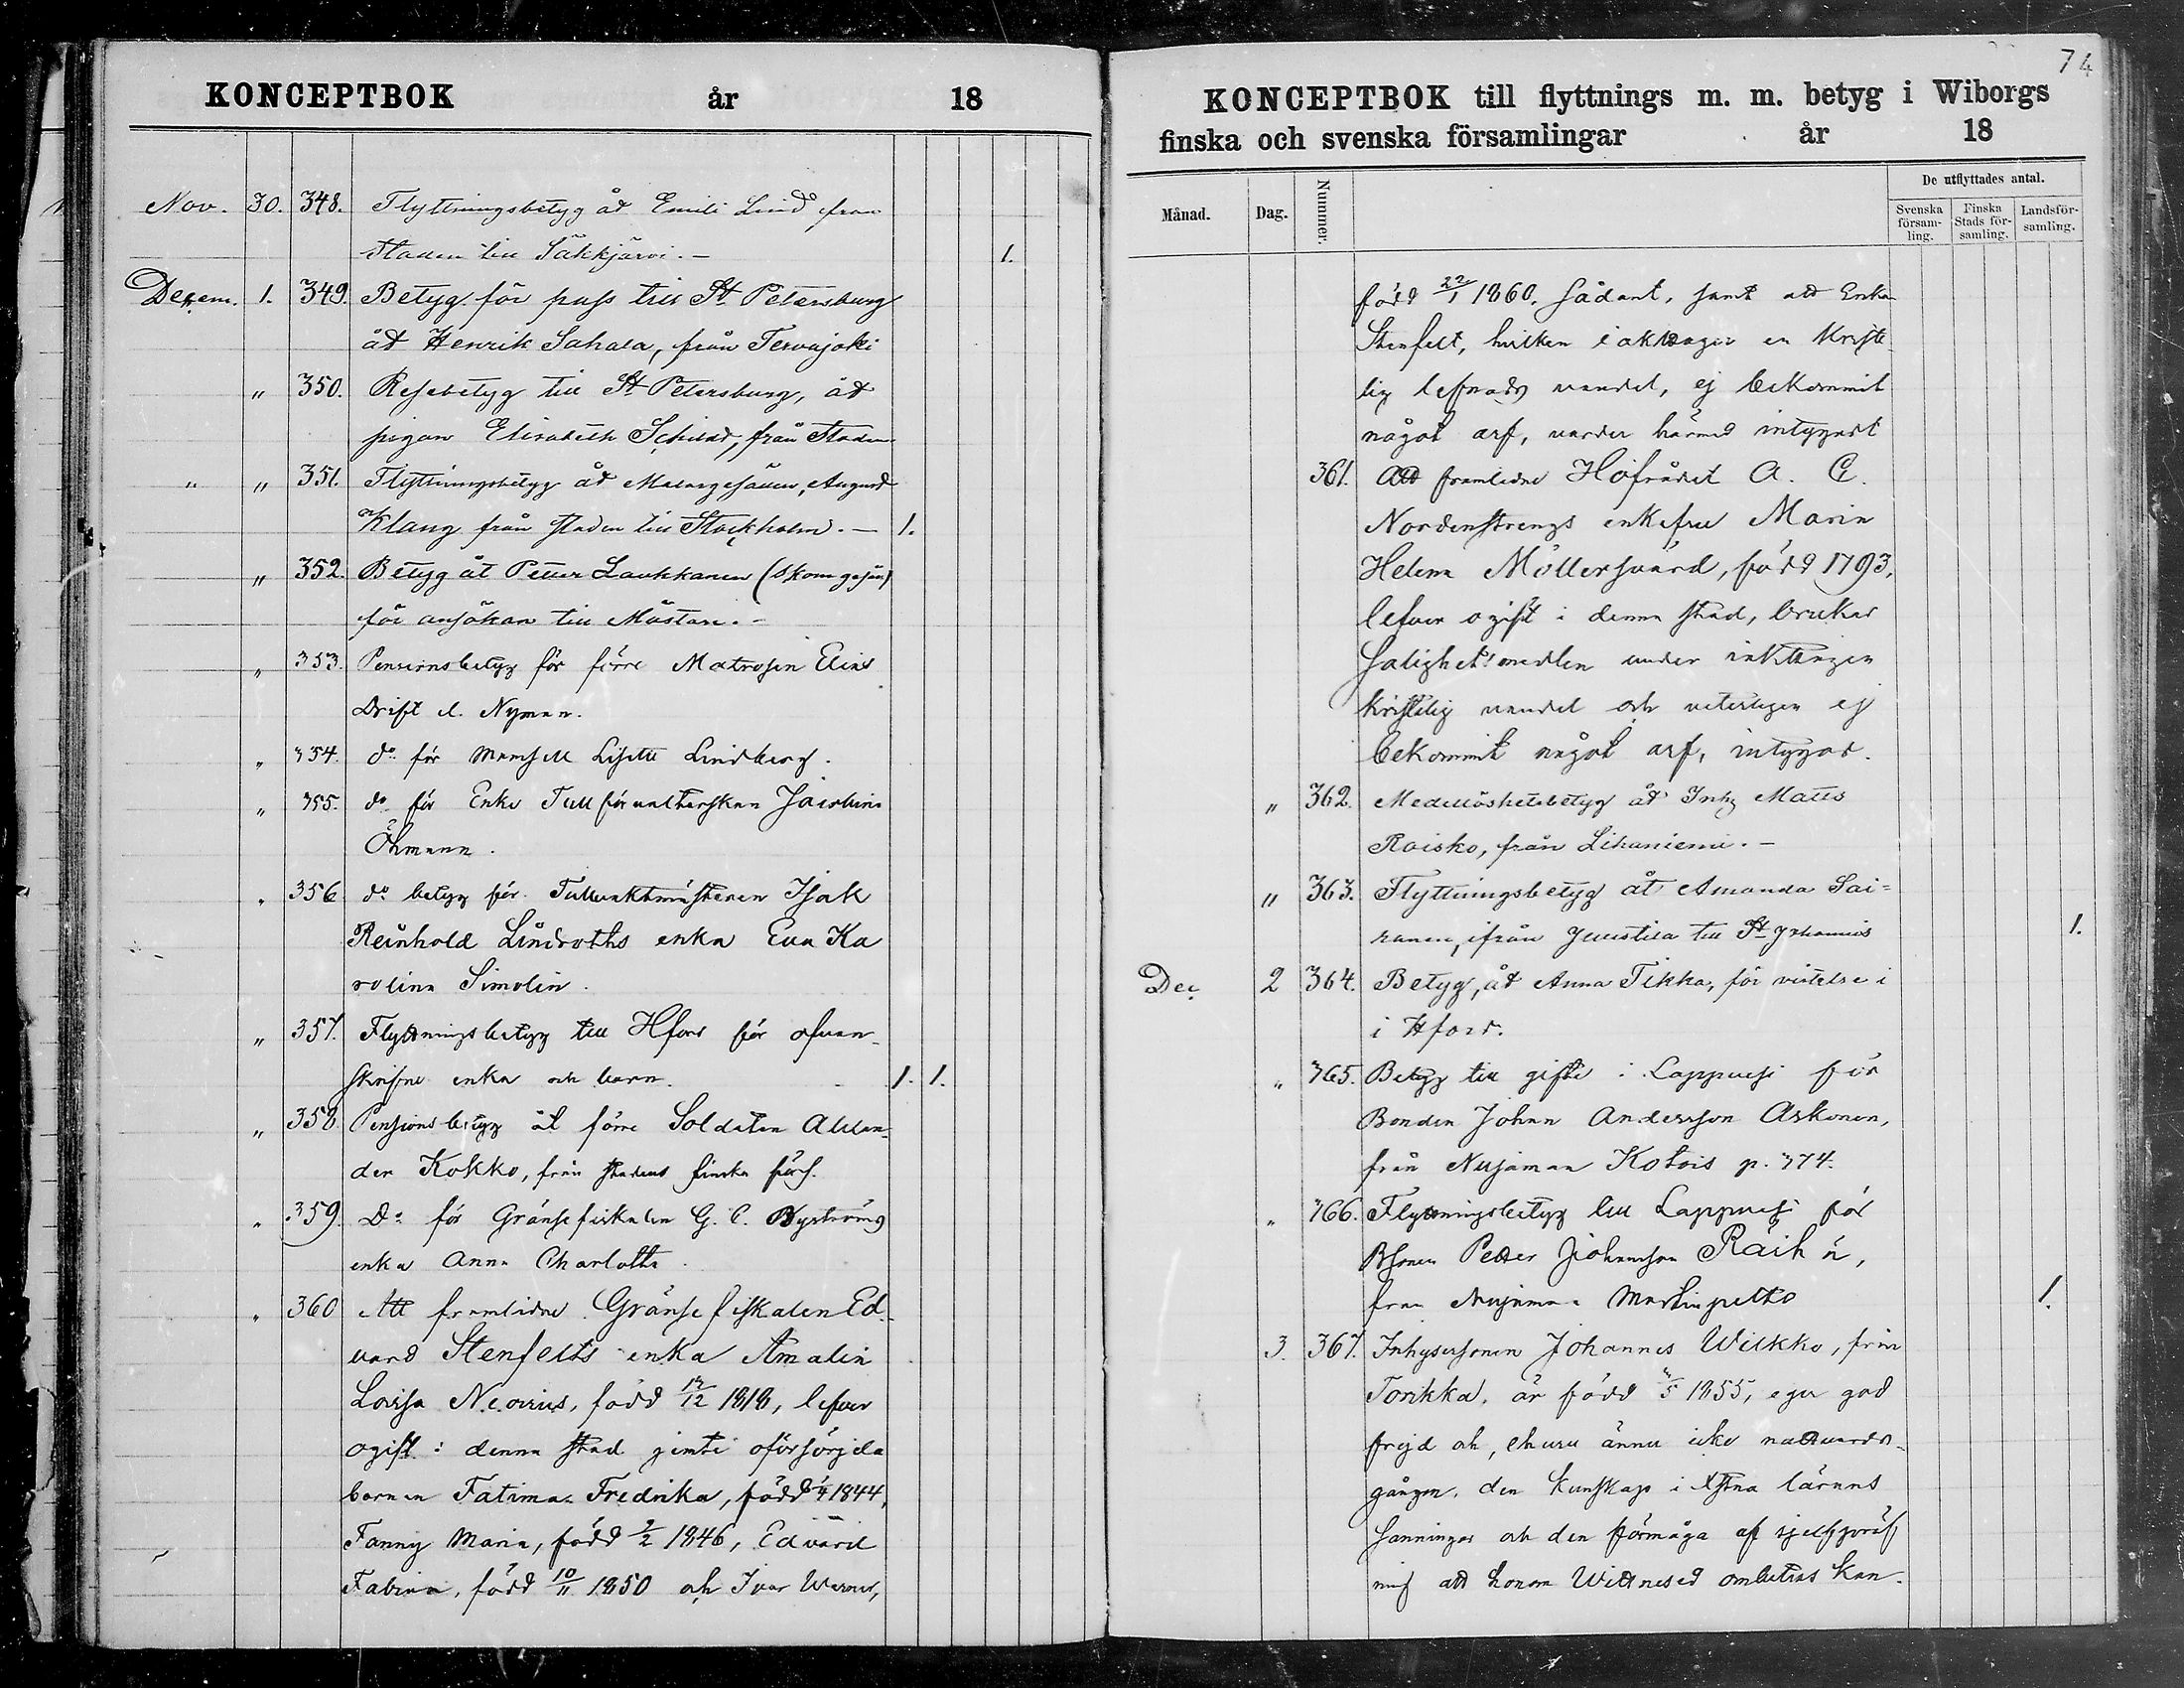 KONCEPTBOK år 18
Nov. 30. 348. Flyttningsbetyg åt Emili Lind från
staden till Säkkjärvi. — 1.
Decem. 1. 349. Betyg för pass till St. Petersburg
åt Henrik Sahala, från Tervajoki
" 350. Resebetyg till St. Petersburg, åt
pigan Elisabeth Schildt, från Staden
" " 351. Flyttningsbetyg åt Malaregesällen, August
Klang från staden till Stockholm. — 1.
" 352. Betyg åt Petter Laukkanen (skom.gesäll)
för ansökan till Mästare. –
" 353. Pensionsbetyg för förre Matrosen Elias
Drift el. Nyman.
" 354. do för Mamsell Lisette Lindberg.
" 355. do för Enke Tullförvalterskan
Öhmann.
" 356 do betyg för Tullvaktmästaren Isak
Reinhold Lindroths enka Eva Ka
rolina Simolin.
" 357. Flyttningsbetyg till Hfors för ofvan-
skrifne enka och barn. 1. 1.
" 358. Pensionsbetyg åt förre Soldaten Alexan-
der Kokko, från stadens finska förs.
" 359. Do för Gränsefiskalen G. C. Nyströms
enka Anna Charlotta.
" 360 Att framlidne Gränsefiskalen Ed-
vard Stenfelts enka Amalia
Lovisa Neovius, född 17/12 1818, lefver
ogift i denna stad jemte oförsörjda
barnen Fatima Fredrika, född 1844,
Fanny Maria, född 2/2 1846, Edvard
Fabian, född 10/11 1850 och Ivar Werner,
74
KONCEPTBOK till flyttnings m. m. betyg i Wiborgs
finska och svenska församlingar år 18
Månad. Dag. Nummer. De utflyttades antal.
Svenska församling. Finska Stads församling. Landsförsamling.
född 22/1 1860. Sådant, samt att Enkan
Stenfelt, hvilken iakttager en Kriste-
lig leffnads vandel, ej bekommit
något arf, varder härmed intygadt
361. Att framlidne Hofrådet A. C.
Nordenstrengs enkefru Maria
Helena Möllersvärd, född 1793,
lefver ogift i denna stad, brukar
Salighetsmedlen under
kristelig vandel och veterligen ej
bekommit något arf, intygar.
" 362. Medellöshetsbetyg åt Inh. Matts
Raisko, från Lihaniemi. –
" 363. Flyttningsbetyg åt Amanda Sai=
ranen, ifrån Juustila till St. Johannis 1.
Dec 2 364. Betyg, åt Anna Tikka, för vistelse i
i Hfors.
" 365. Betyg till gifte i Lappvesi för
Bonden Johan Andersson Askonen,
från Nuijamaa Kotois p. 374.
" 366. Flyttningsbetyg till Lappvesi för
Bsonen Petter Johansson Räihä,
från Nuijamaa Martinpelto 1.
3. 367. Inhysesonen Johannes Wilkko, från
Torikka, är född /5 1855, eger god
frejd och, ehuru ännu icke nattvards-
gången, den kunskap i Xstna lärans
sanningar och den förmåga af sjelfpröf
ning att honom Wittnesed ombetros kan.